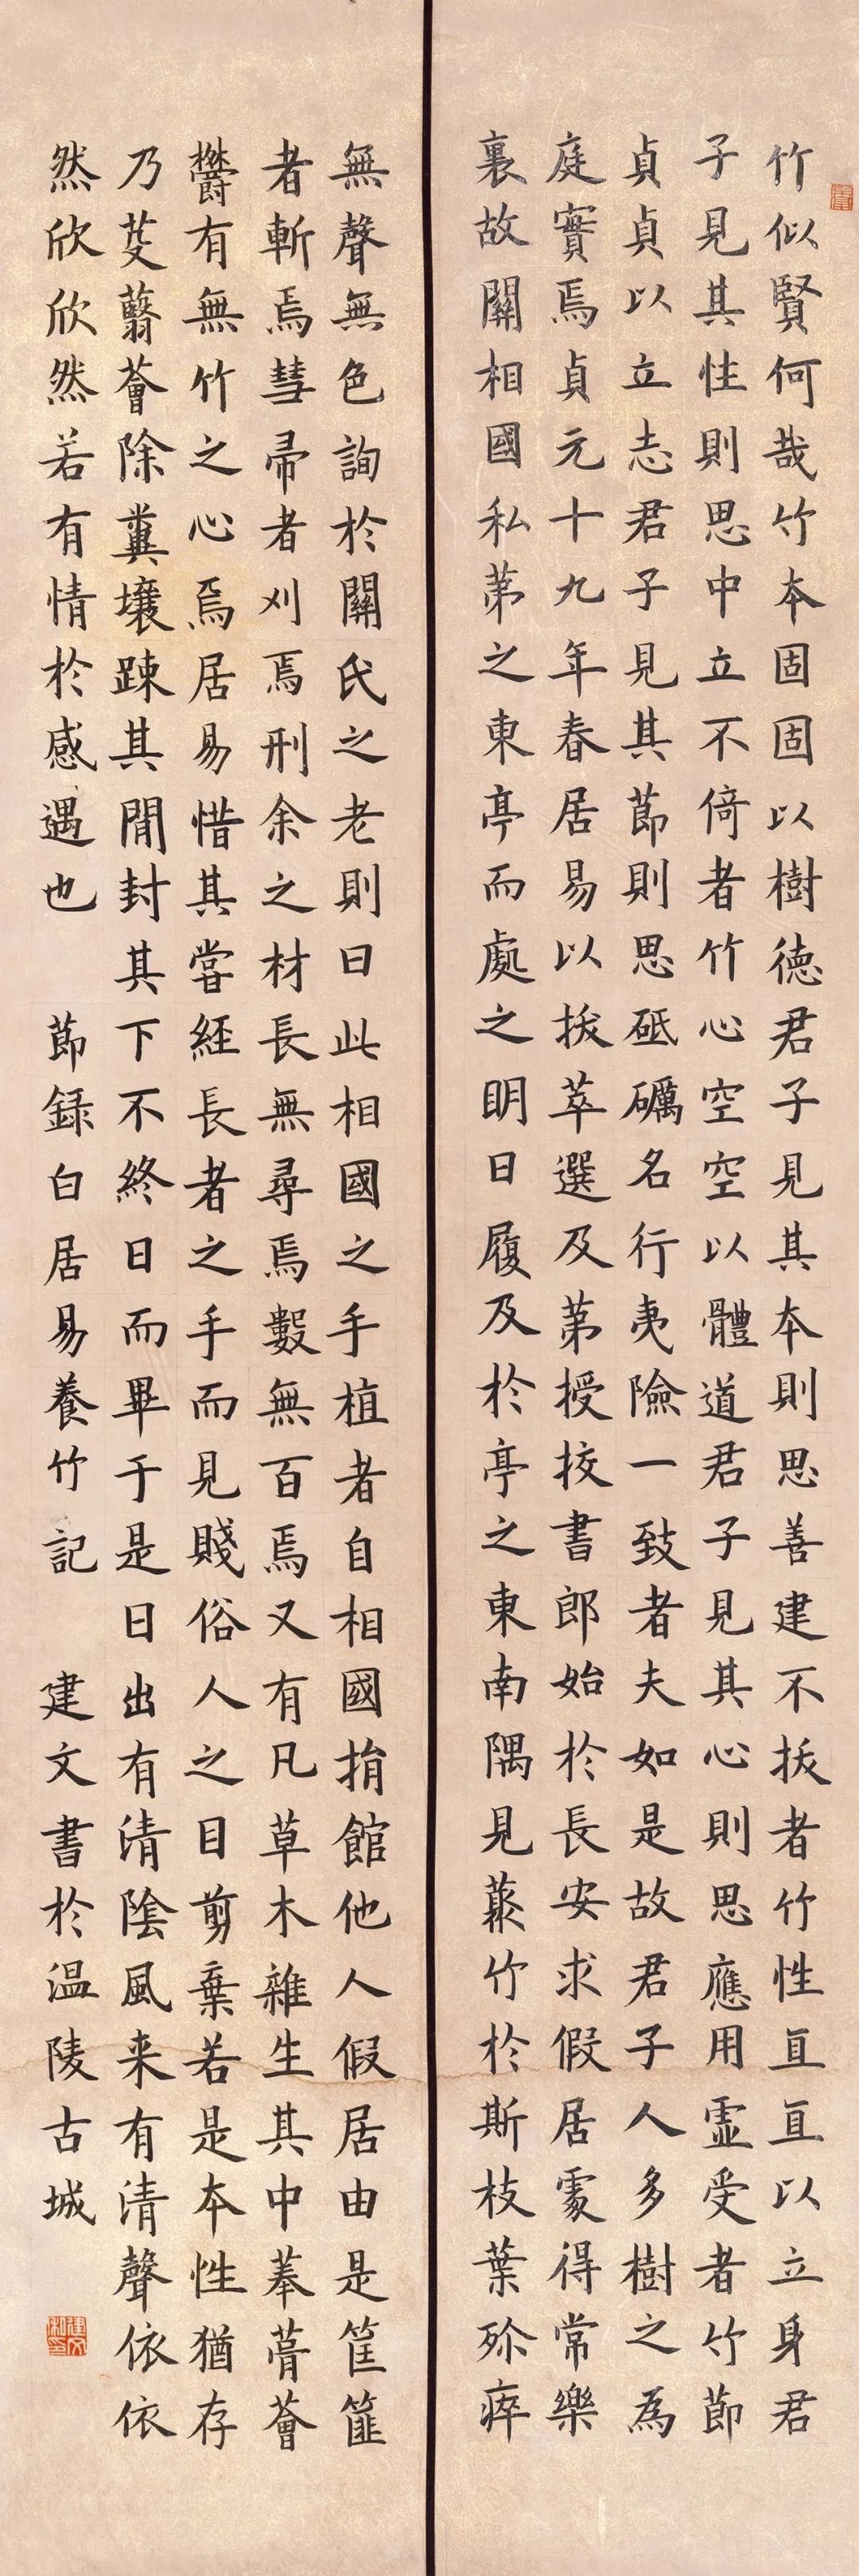 竹似賢何哉竹本固固以樹德君子見其本則思善建不拔者竹性直直以立身君
子見其性則思中立不倚者竹心空空以體道君子見其心則思應用虛受者竹節
貞貞以立志君子見其節則思砥礪名行夷險一致者夫如是故君子人多樹之為
庭實焉貞元十九年春居易以拔萃選及第授校書郎始於長安求假居處得常樂
裏故關相國私第之東亭而處之明日履及於亭之東南隅見叢竹於斯枝葉殄瘁
無聲無色詢於關氏之老則曰此相國之手植者自相國捐館他人假居由是筐篚
者斬焉彗帚者刈焉刑余之材長無尋焉數無百焉又有凡草木雜生其中菶茸薈
鬱有無竹之心焉居易惜其嘗經長者之手而見賤俗人之目剪棄若是本性猶存
乃芟蘙薈除糞壤踈其間封其下不終日而畢于是日出有清陰風来有清聲依依
然欣欣然若有情於感遇也 節録白居易養竹記 建文書於温陵古城